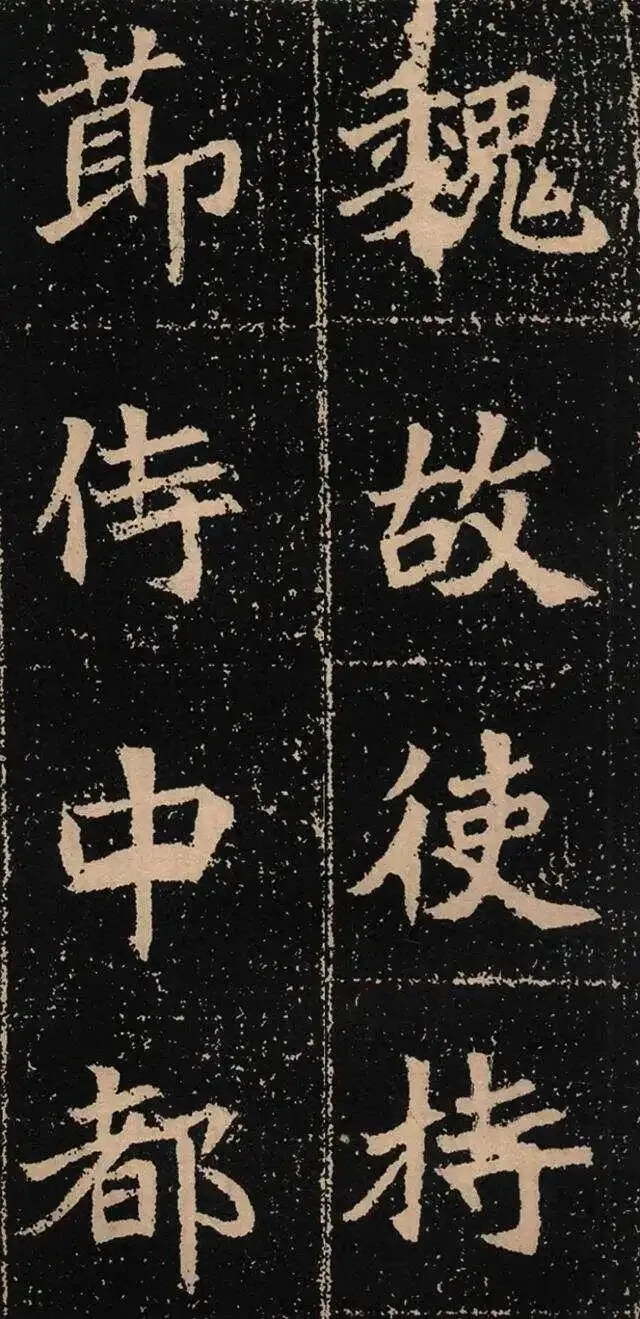 魏故使持
節侍中都